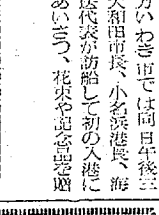 方いわき市では同日午後三
大和田市長、小名浜港長、海
送代表が訪船して初の入港に
あいさつ、花束や記念品を贈